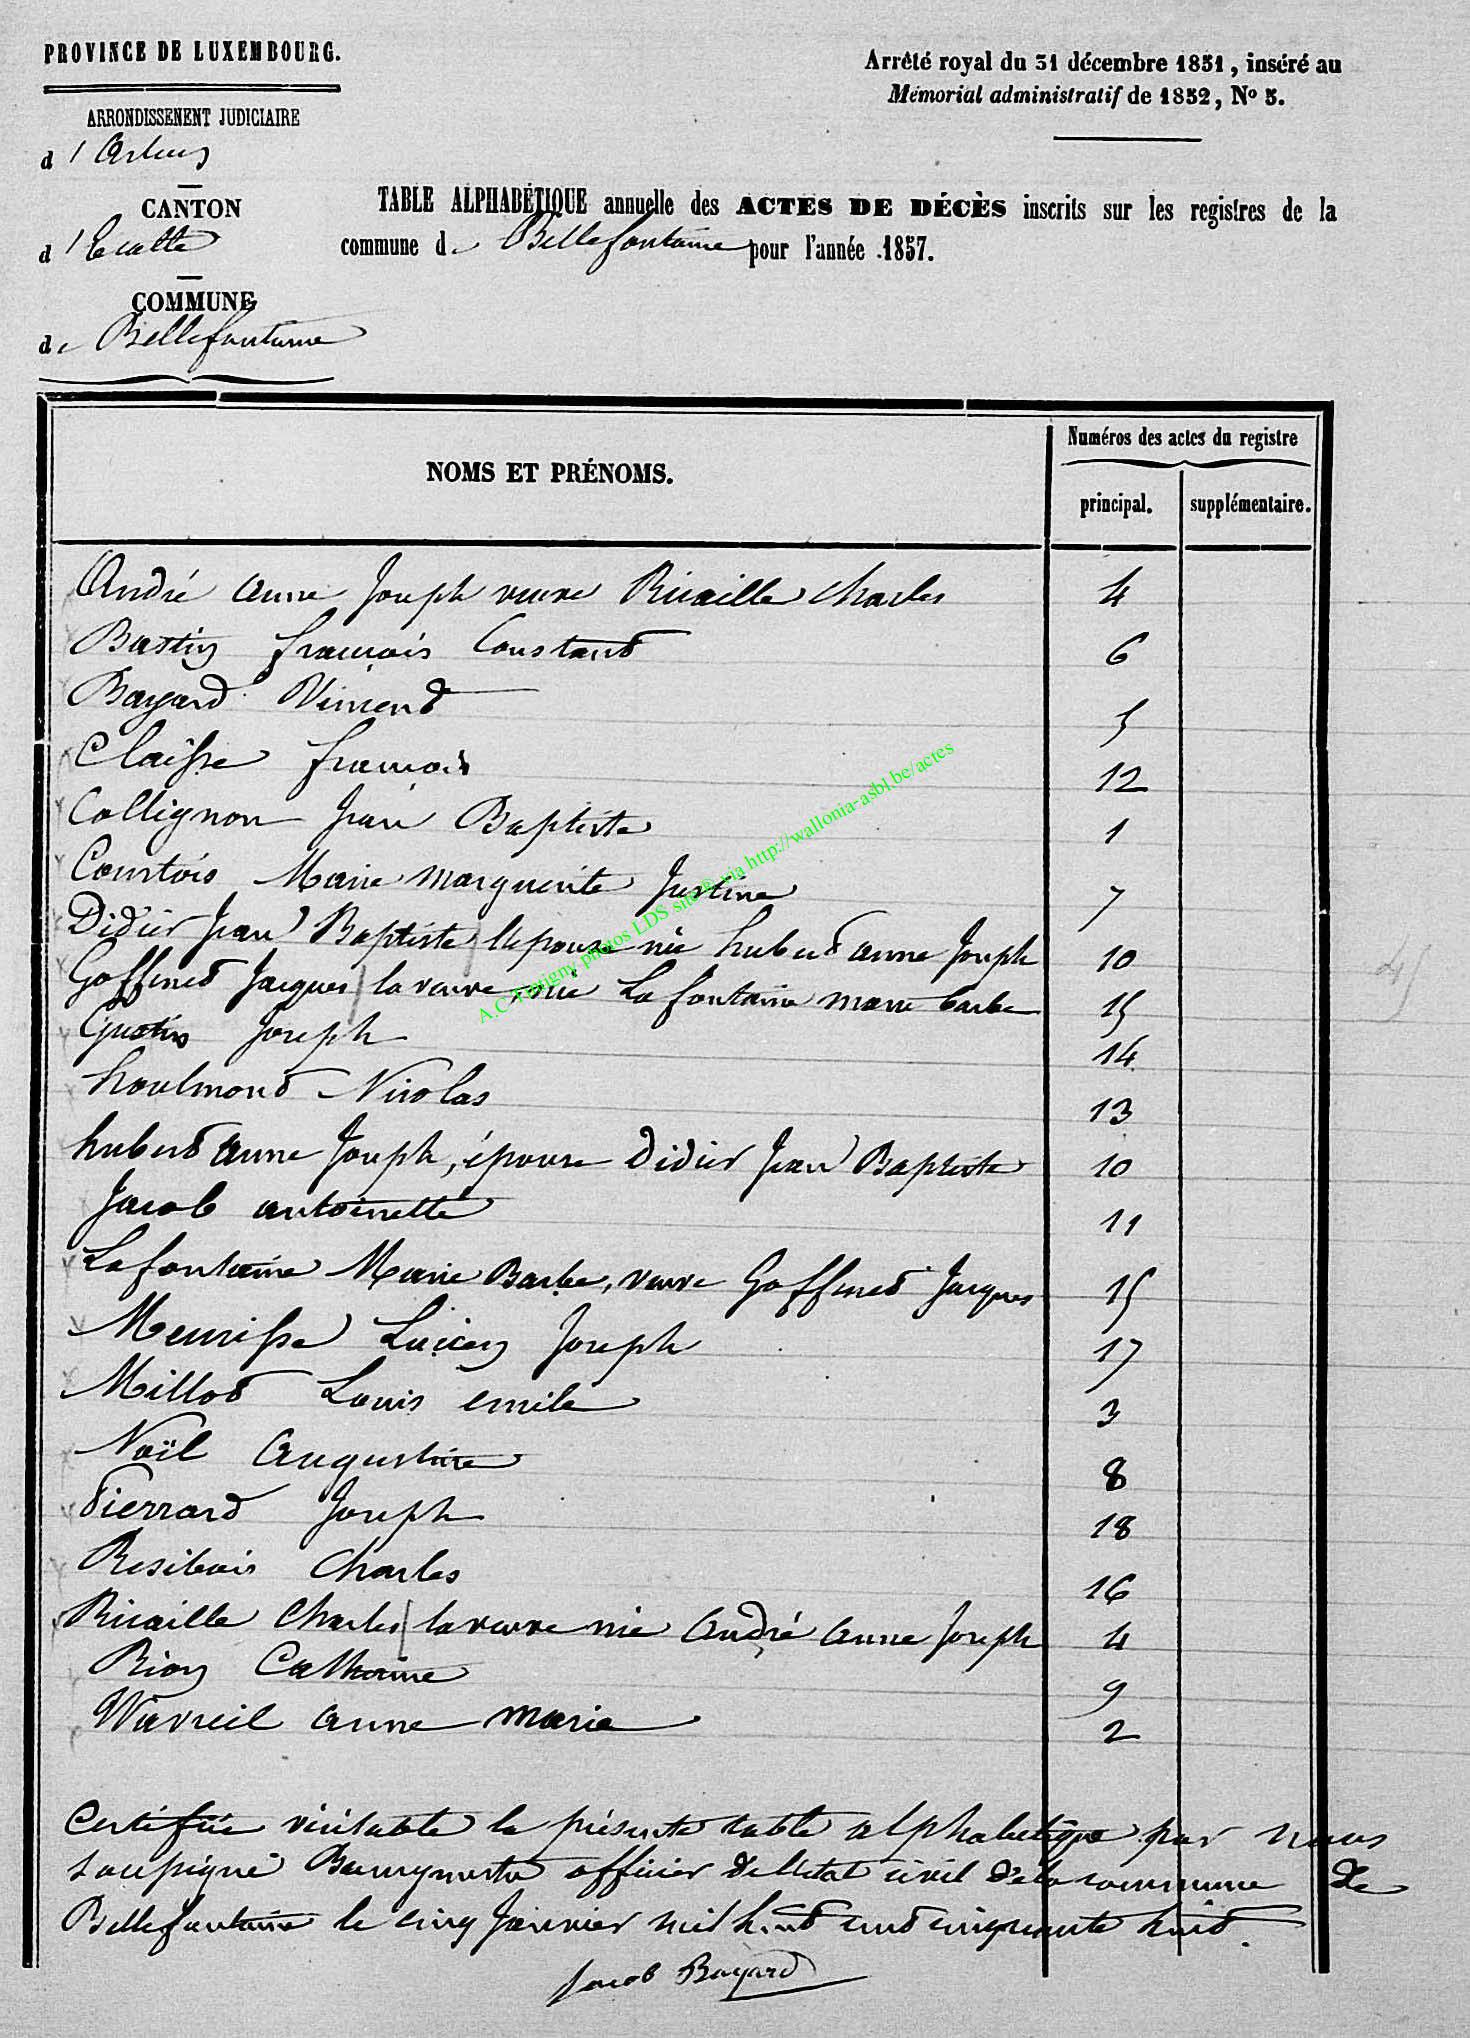 PROVINCE DE LUXEMBOURG.
Arrêté royal du 31 décembre 1851, inséré au
Mémorial administratif de 1852, No 5.
ARRONDISSEMENT JUDICIAIRE
d'Arlon
CANTON
d'Etalle
COMMUNE
de Bellefontaine
TABLE ALPHABÉTIQUE annuelle des ACTES DE DÉCÈS inscrits sur les registres de la
commune de Bellefontaine pour l'année 1857.
NOMS ET PRÉNOMS.
Numéros des actes du registre
principal. supplémentaire.
André anne Joseph veuve Ricaille Charles 4
Bastin françois Constant 6
Bayard Vincent 5
Claisse françois 12
Collignon Jean Baptiste 1
Courtois Marie Marguerite Justine 7
Didier Jean Baptiste l'épouse née hubert anne Joseph 10
Goffinet Jacques la veuve née Lafontaine marie barbe 15
Gustin Joseph 14
houlmont Nicolas 13
hubert anne Joseph, épouse Didier Jean Baptiste 10
Jacob antoinette 11
Lafontaine Marie Barbe, veuve Goffinet Jacques 15
Meurisse Lucien Joseph 17
Millot Louis emile 3
Noël Augustine 8
Pierrard Joseph 18
Resibois Charles 16
Ricaille Charles la veuve née André Anne Joseph 4
Rion Catherine 9
Wavreil anne marie 2
Certifiée véritable la présente table alphabétique par nous
soussigné Bourgmestre officier de l'état civil de la commune de
Bellefontaine le cinq Janvier mil huit cent cinquante huit.
Jacob Bayard
A.C. Tintigny photos LDS site® via http://wallonia-asbl.be/actes